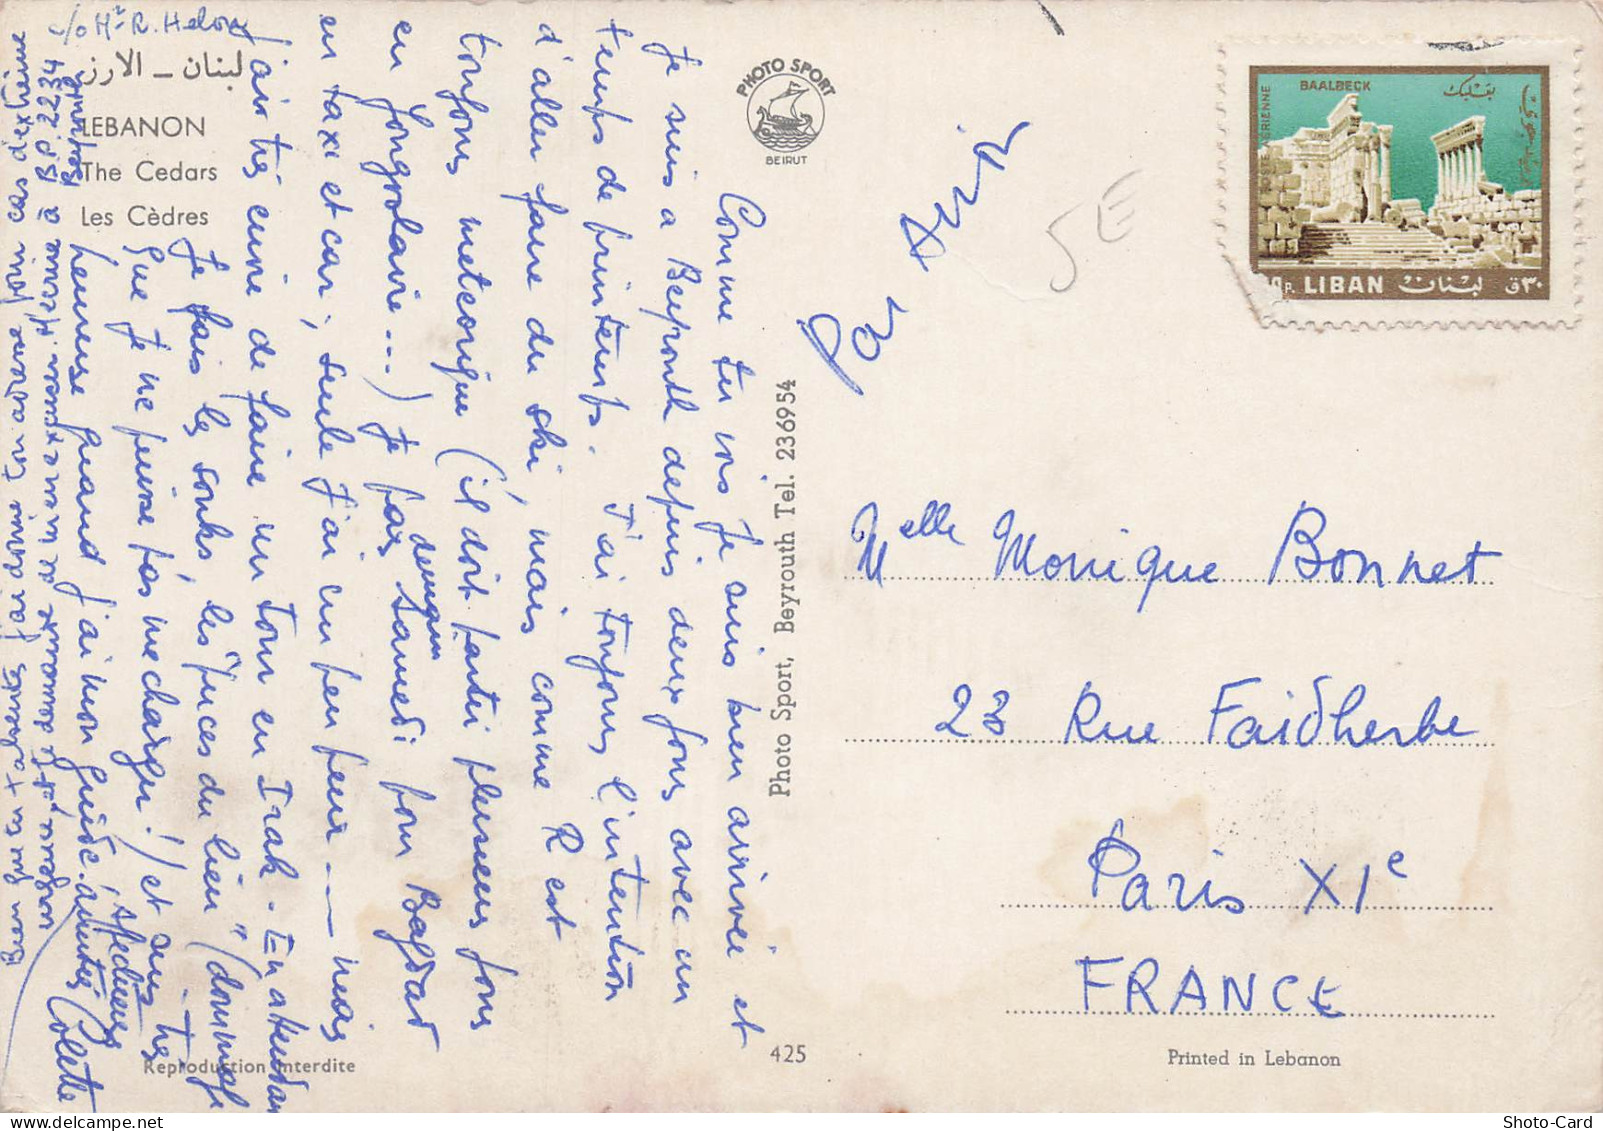 Comme tu vois je suis bien arrivée et
je suis à Beyrouth depuis deux jours avec un
temps de printemps. J'ai toujours l'intention
d'aller faire du ski, mais comme R est
toujours meteorique (il doit partir plusieurs jours
en Jongolaire...) je pars Samedi pour Bagdad
demain
en taxi et car, seule j'ai un peu peur --- mais
j'ai très envie de faire un tour en Irak. En attendant
Je fais les souks, les "puces du lieu" (dommage
que je ne puisse pas me charger!) et suis très
heureuse quand j'ai mon guide.
Affectueuses amitiés Colette
Bien qu'en j'ai donné ton adresse pour cas d'extrême
je demande de m'envoyer à BP. 2234
c/o Mr R. Helou
Beyrouth
لبنان – الارز
LEBANON
The Cedars
Les Cèdres
PHOTO SPORT
BEIRUT
Photo Sport, Beyrouth Tel. 236954
Reproduction interdite
425
Par Avion
5E
BAALBECK
بعلبك
POSTE AERIENNE
0P. LIBAN لبنان ٣٠ق
Melle Monique Bonnet
23 Rue Faidherbe
Paris XIe
FRANCE
Printed in Lebanon
Shoto-Card